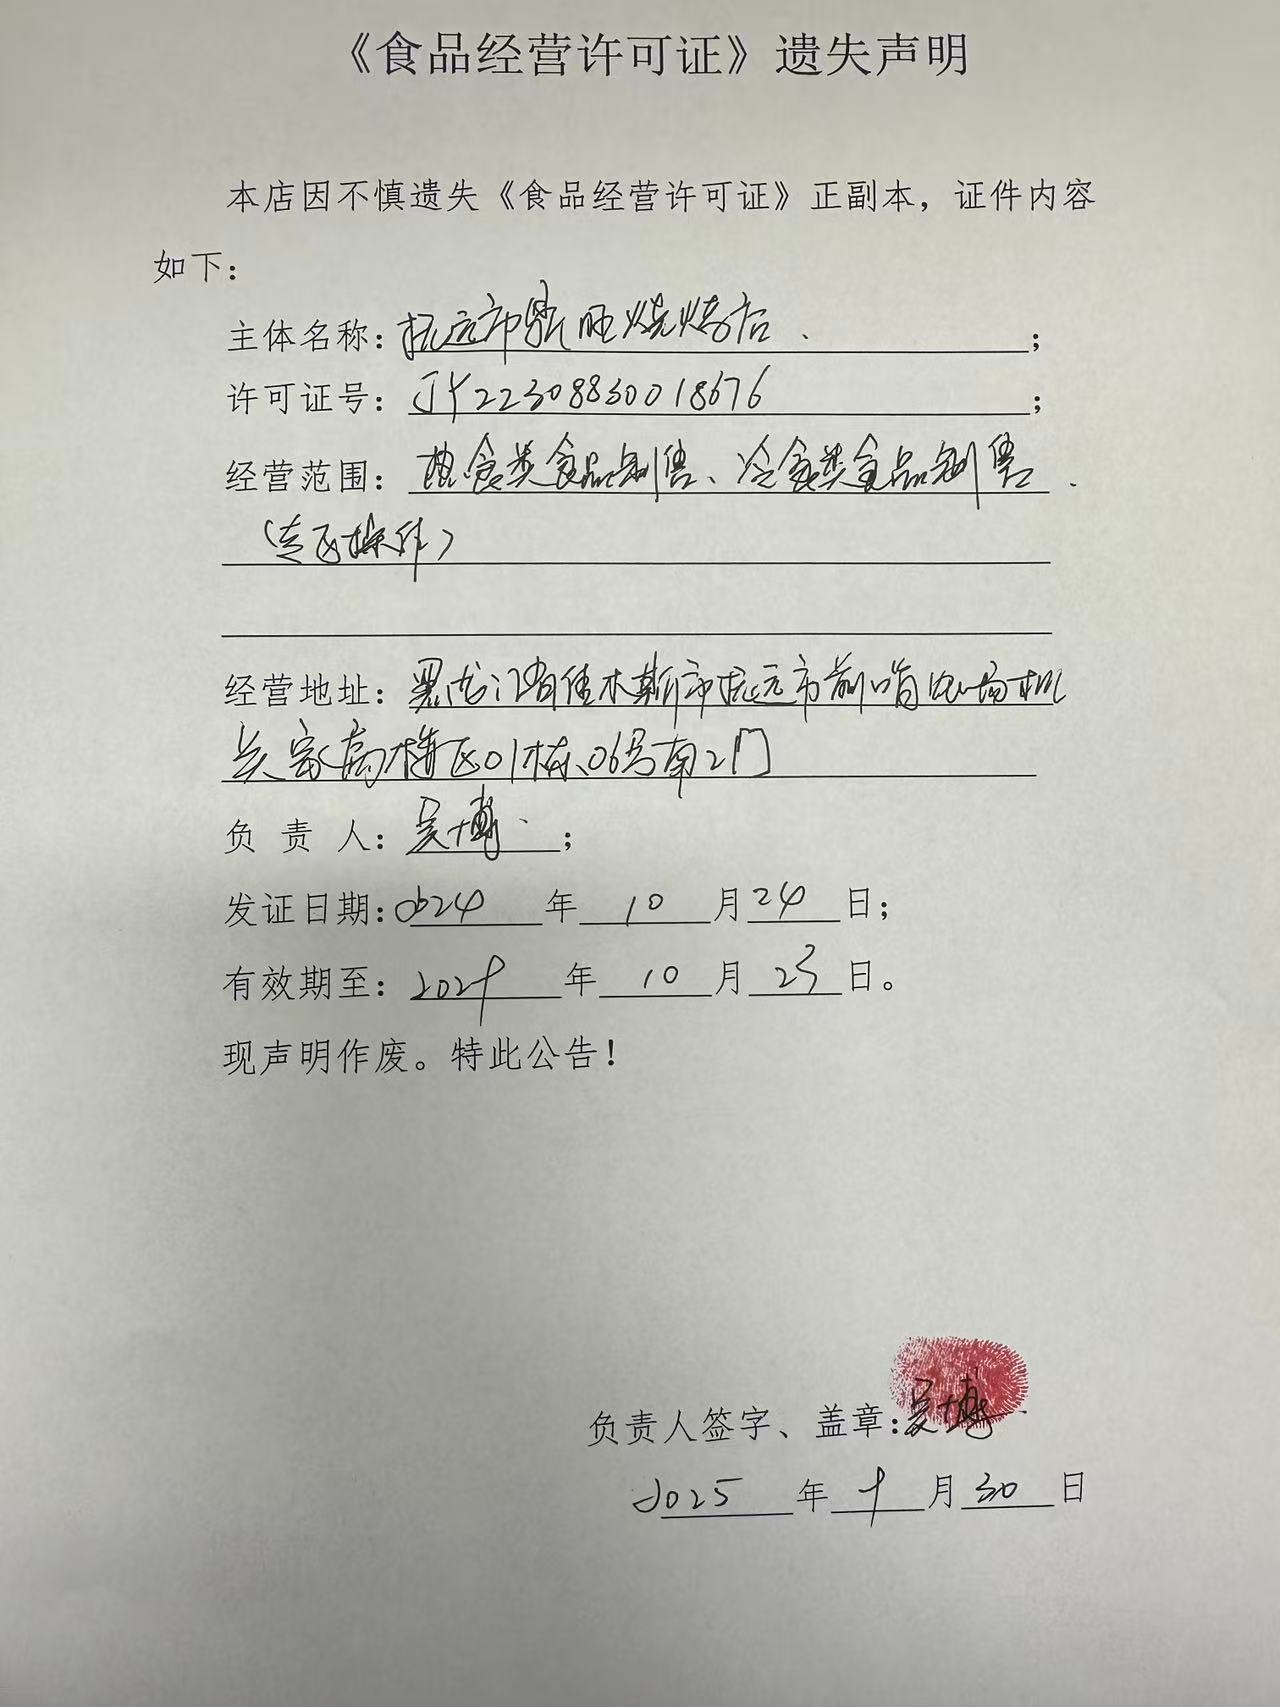 《食品经营许可证》遗失声明
本店因不慎遗失《食品经营许可证》正副本，证件内容
如下：
主体名称：抚远市 旺烧烤店；
许可证号：JY22308830018676；
经营范围：热食类食品制售、冷食类食品制售
（专区操作）
经营地址：黑龙江省佳木斯市抚远市前哨农场机
关 高 区01栋06号南2门
负 责 人：吴博；
发证日期：2024年10月24日；
有效期至：2029年10月23日。
现声明作废。特此公告！
负责人签字、盖章：吴博
2025年9月30日